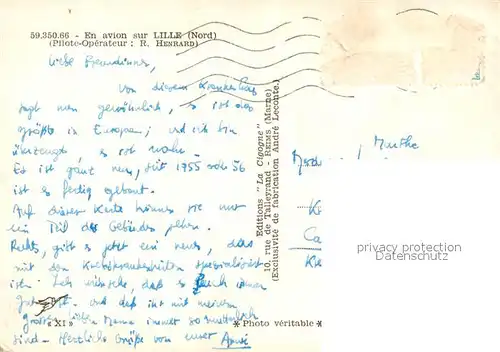 59.350.66 - En avion sur LILLE (Nord)
(Pilote-Opérateur : R. HENRARD)
Liebe Freundinnen,
Von diesem Krankenhaus
sagt man gewöhnlich, es ist das
größte in Europa; und ich bin
überzeugt, es ist wahr.
Es ist ganz neu, seit 1955 oder 56
ist es fertig gebaut.
Auf dieser Karte können sie nur
ein Teil des Gebäudes sehen.
Rechts, gibt es jetzt ein neues, das
mit den spezialisiert
ist. Ich wünsche, daß es Euch immer
gut geht. und daß ihr mit meiner
großen lieben Mama immer so
sind. Herzliche Grüße von eurer
« XI »
Editions "La Cigogne"
10, rue de Talleyrand - REIMS (Marne)
(Exclusivité de fabrication André Leconte.)
Marthe
privacy protection
Datenschutz
* Photo véritable *